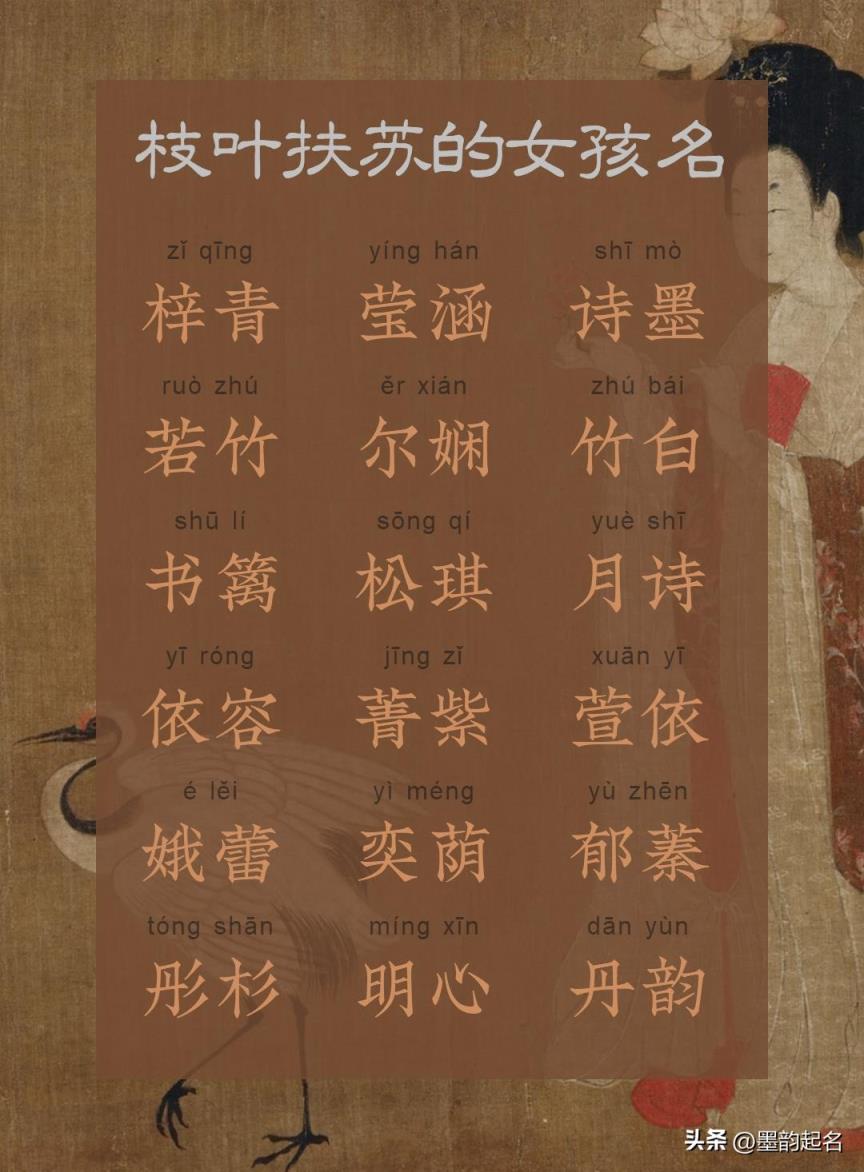 枝叶扶苏的女孩名
zǐ qīng yíng hán shī mò
梓青 莹涵 诗墨
ruò zhú ěr xián zhú bái
若竹 尔娴 竹白
shū lí sōng qí yuè shī
书篱 松琪 月诗
yī róng jīng zǐ xuān yī
依容 菁紫 萱依
é lěi yì méng yù zhēn
娥蕾 奕荫 郁蓁
tóng shān míng xīn dān yùn
彤杉 明心 丹韵
头条 @墨韵起名